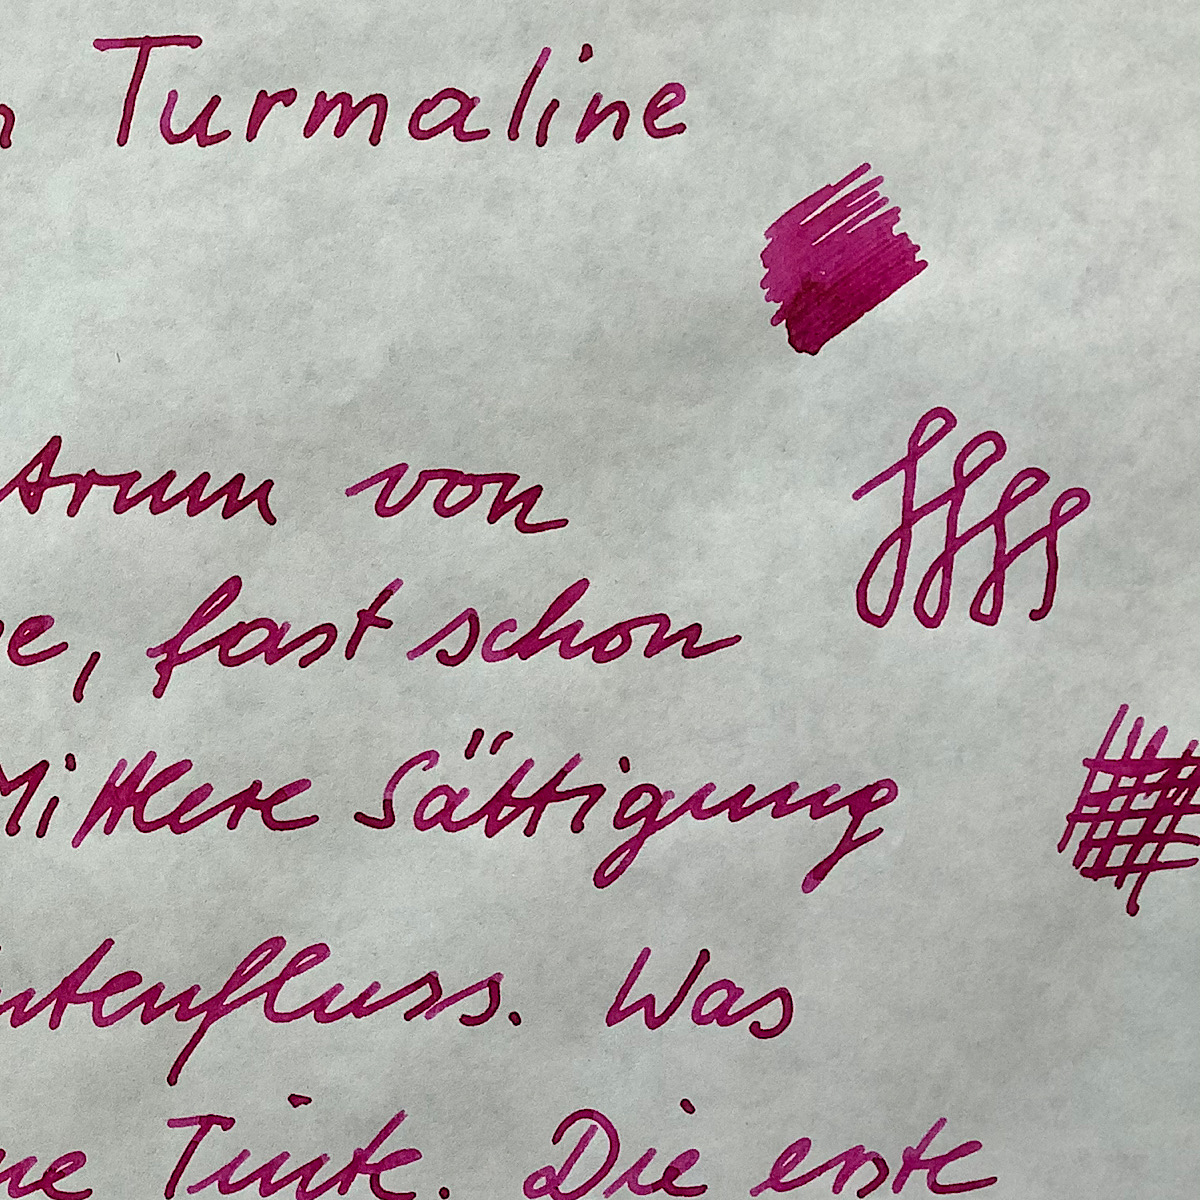 n Turmaline
trum von
e, fast schon
Mittlere Sättigung
ntenfluss. Was
ne Tinte. Die erste